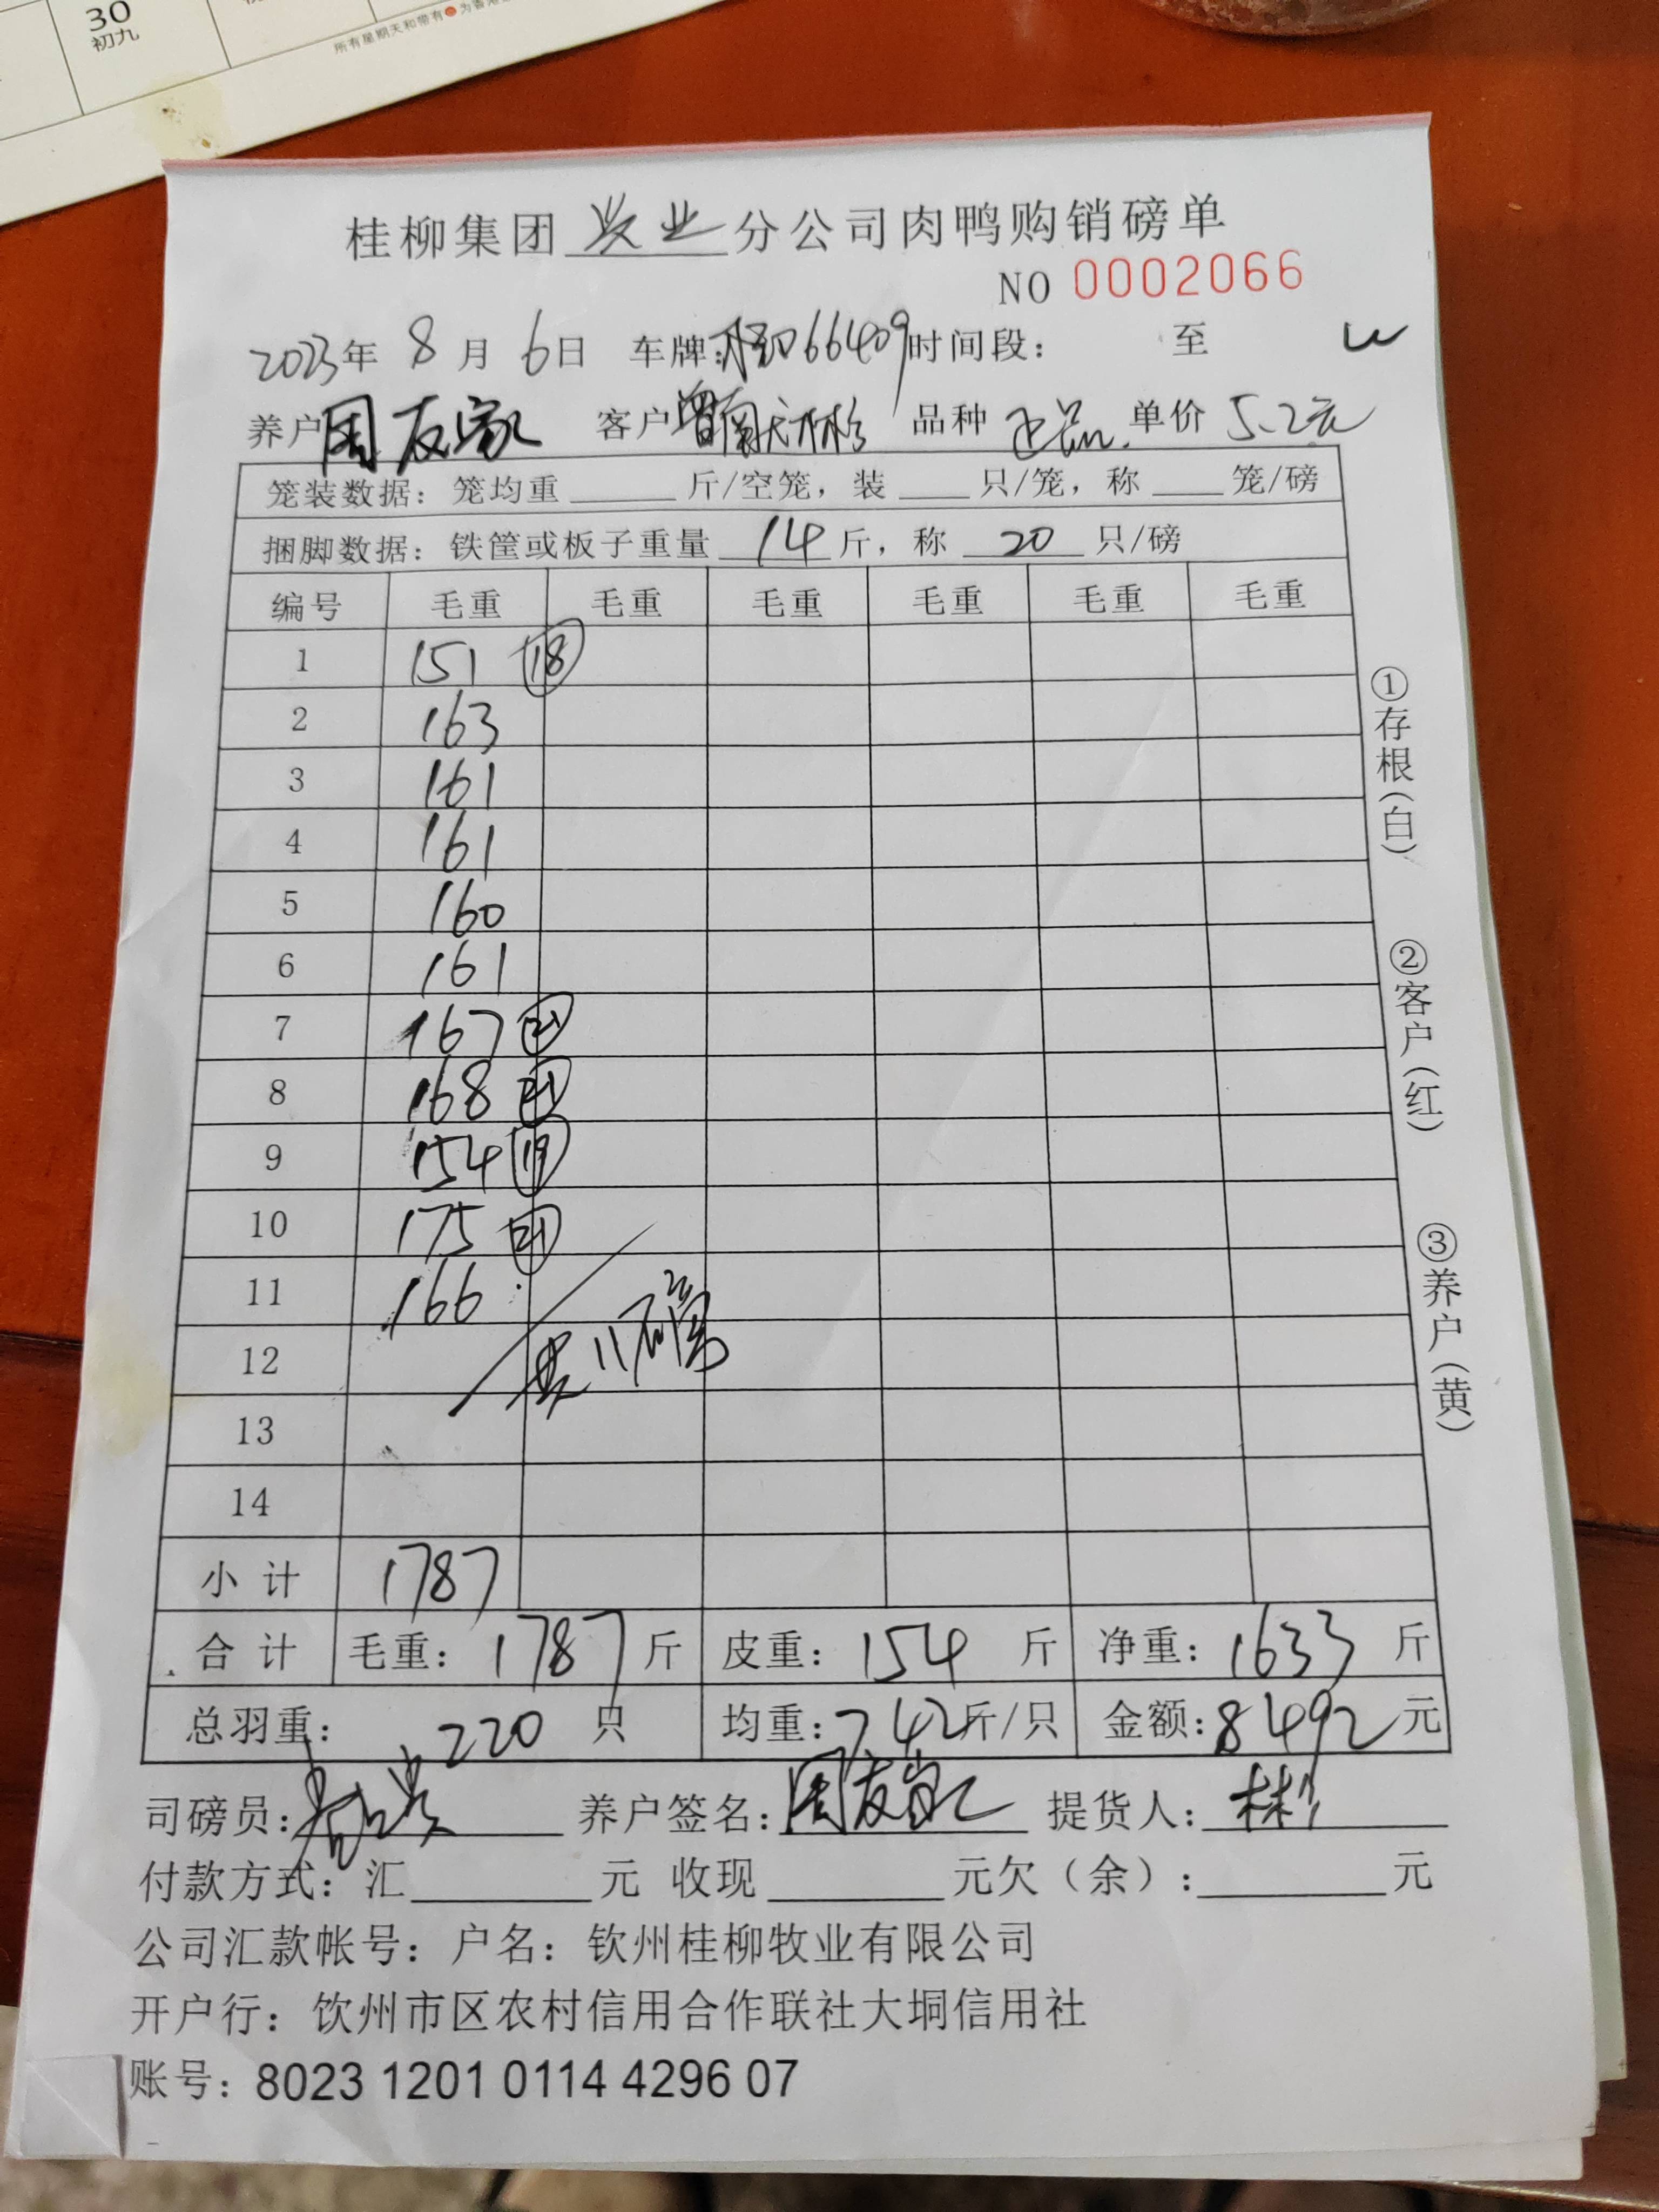 30
初九
所有星期天和带有
为香港
桂柳集团 牧业 分公司肉鸭购销磅单
NO 0002066
2023年 8 月 6日 车牌: 66409 时间段: 至
养户 周友家 客户 曾 彬 品种 正品 单价 5.2元
笼装数据: 笼均重 斤/空笼, 装 只/笼, 称 笼/磅
捆脚数据: 铁筐或板子重量 14 斤, 称 20 只/磅
编号 毛重 毛重 毛重 毛重 毛重 毛重
1 151 18
2 163
3 161
4 161
5 160
6 161
7 167 21
8 168 21
9 154 19
10 175 21
11 166
12 共11磅
13
14
小计 1787
合计 毛重: 1787 斤 皮重: 154 斤 净重: 1633 斤
总羽重: 220 只 均重: 7.42 斤/只 金额: 8492 元
司磅员: 养户签名: 周友家 提货人: 彬
付款方式: 汇 元 收现 元欠(余): 元
公司汇款帐号: 户名: 钦州桂柳牧业有限公司
开户行: 钦州市区农村信用合作联社大垌信用社
账号: 8023 1201 0114 4296 07
①存根(白)
②客户(红)
③养户(黄)